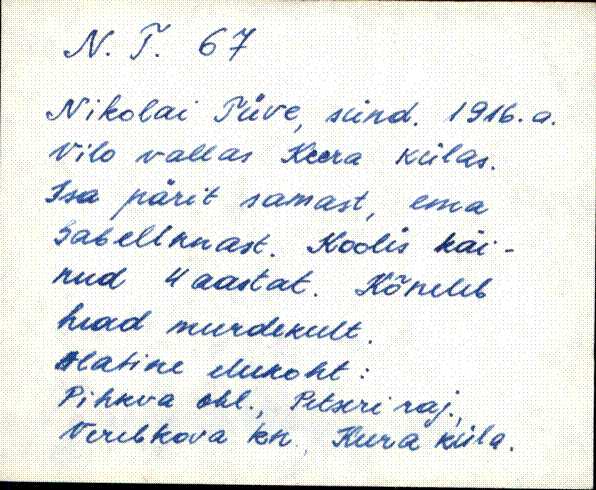 N. T. 67
Nikolai Tüve, sünd. 1916. a.
Vilo vallas Keera külas.
Isa pärit samast, ema
Sabellnast. Koolis käi-
nud 4 aastat. Kõneleb
head murdekult.
Alatine elukoht:
Pihkva obl., Petseri raj.,
Verebkova kn. Kuura küla.